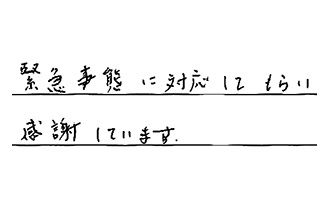 緊急事態に対応してもらい
感謝しています.